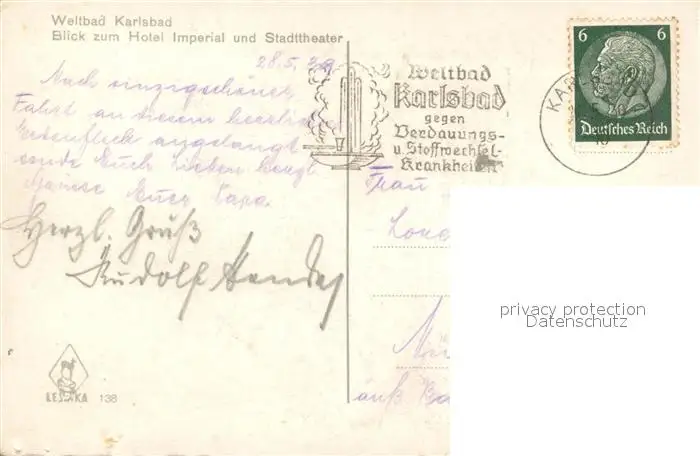 Weltbad Karlsbad
Blick zum Hotel Imperial und Stadttheater
28.5.39
Nach einzigschöner
Fahrt an diesem herrlichen
Erdenfleck angelangt
sende Euch Lieben herzl.
Euer Papa
Herzl. Gruß
Rudolf
LESTKA 138
Weltbad
Karlsbad
gegen
Verdauungs-
u. Stoffwechsel-
Krankheiten
6 6
Deutsches Reich
Frau
privacy protection
Datenschutz